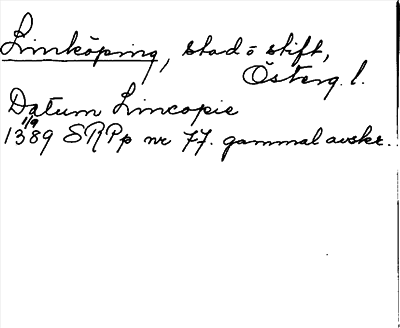 Linköping, stad o stift,
Österg. l.
Datum Lincopie
1/9
1389 SRPp nr 77. gammal avskr.